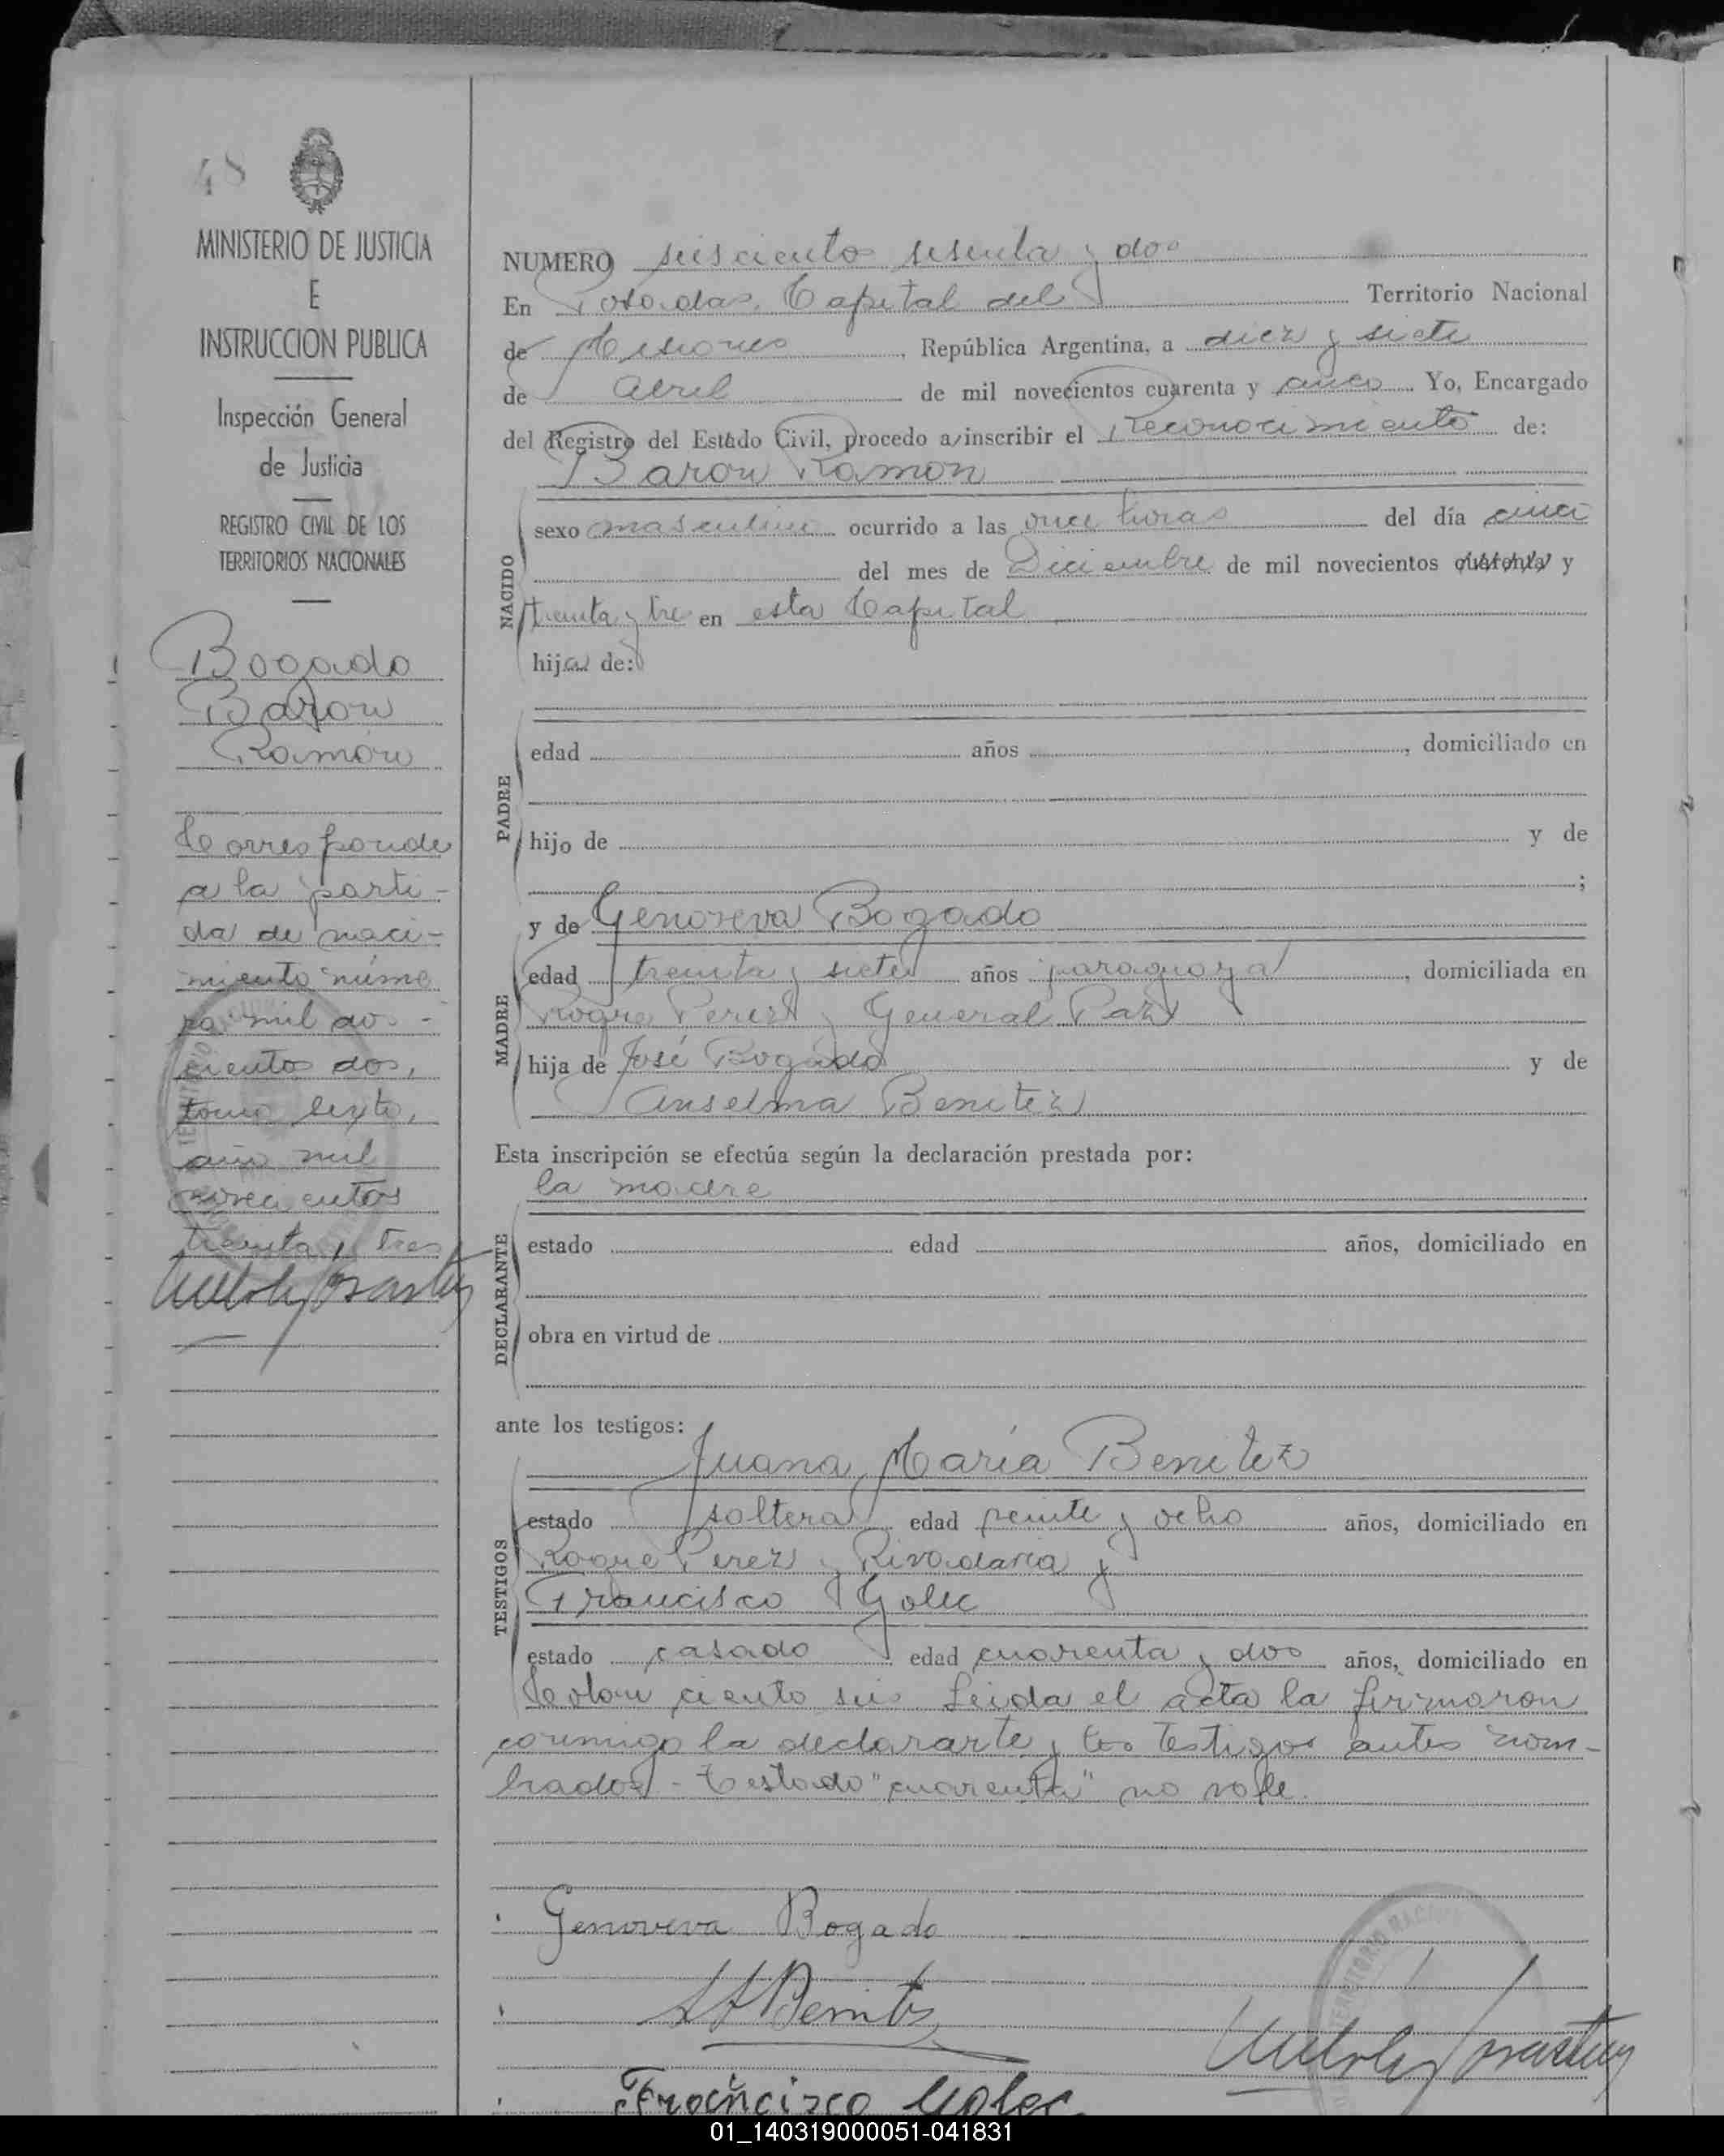 48
MINISTERIO DE JUSTICIA
E
INSTRUCCION PUBLICA
Inspección General
de Justicia
REGISTRO CIVIL DE LOS
TERRITORIOS NACIONALES
Bogado
Baron
Ramón
Corresponde
a la parti-
da de naci-
miento núme
ro mil dos-
cientos dos,
tomo sexto,
año mil
novecientos
treinta y tres
NUMERO seiscientos sesenta y dos
En Posadas, Capital del Territorio Nacional
de Misiones, República Argentina, a diez y siete
de Abril de mil novecientos cuarenta y cinco Yo, Encargado
del Registro del Estado Civil, procedo a inscribir el Reconocimiento de:
Baron Ramon
NACIDO
sexo masculino ocurrido a las once horas del día cinco
del mes de Diciembre de mil novecientos cuarenta y
treinta y tre en esta Capital
hijo de:
PADRE
edad años , domiciliado en
hijo de y de
;
y de Genoveva Bogado
MADRE
edad treinta y siete años paraguaya , domiciliada en
Roque Perez y General Paz
hija de José Bogado y de
Anselma Benitez
Esta inscripción se efectúa según la declaración prestada por:
la madre
DECLARANTE
estado edad años, domiciliado en
obra en virtud de
ante los testigos:
Juana María Benitez
TESTIGOS
estado soltera edad veinte y ocho años, domiciliado en
Roque Perez y Rivadavia y
Francisco Golec
estado casado edad cuarenta y dos años, domiciliado en
Colon ciento seis Leida el acta la firmaron
conmigo la declarante y los testigos antes nom-
brados - Testado "cuarenta" no vale.
Genoveva Bogado
Benitez
Francisco Golec
01_140319000051-041831